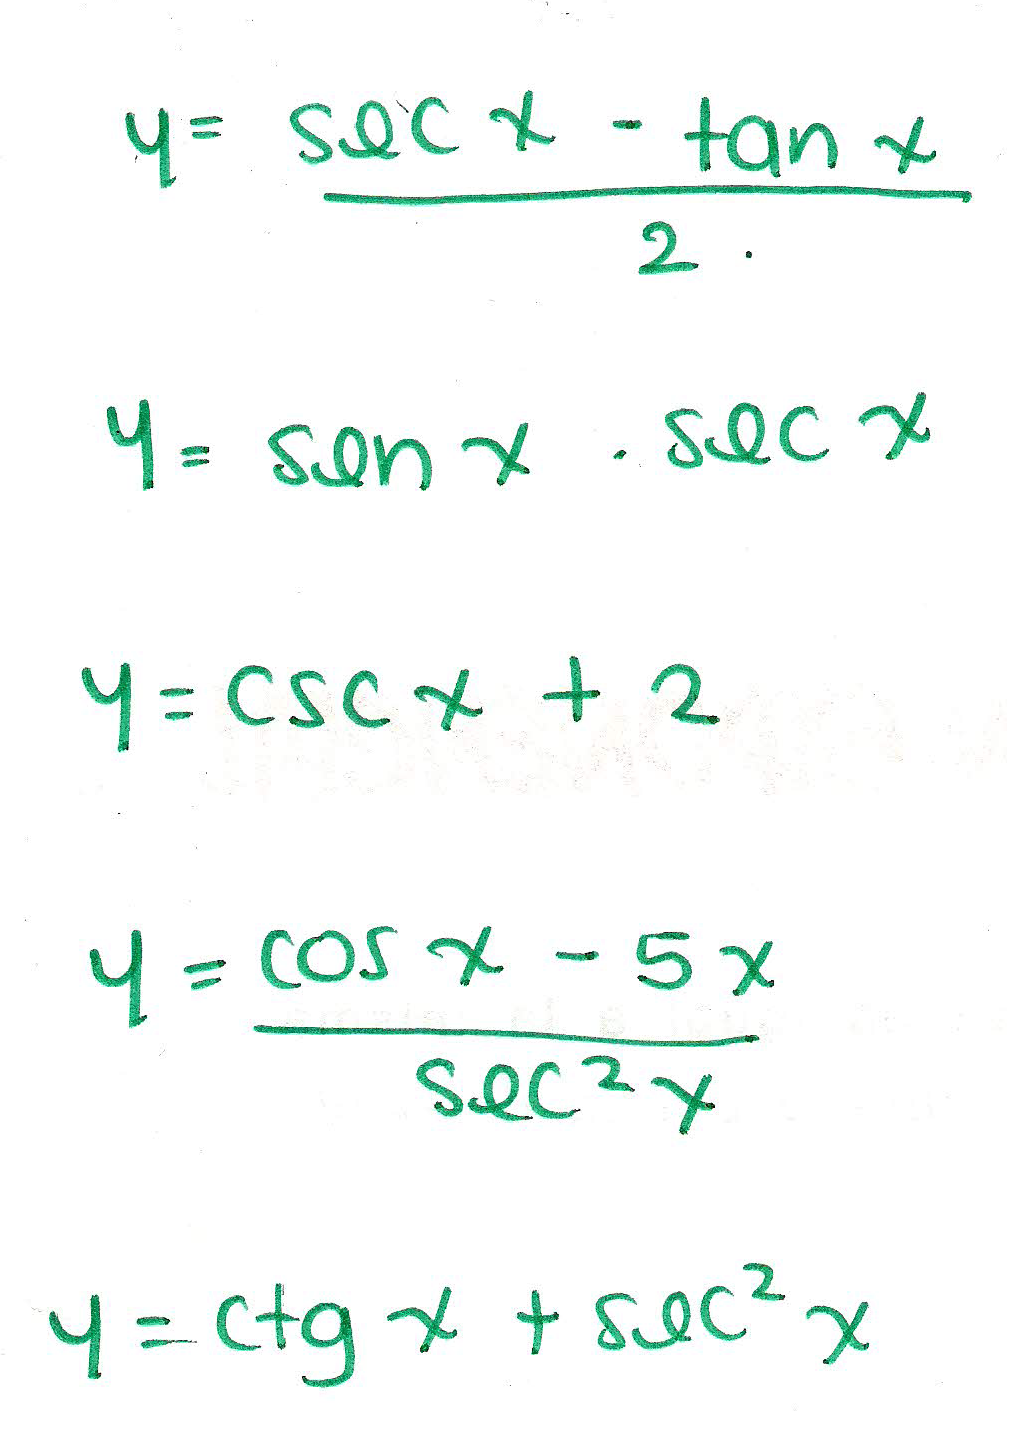 y = sec x - tan x
2.
y = sen x . sec x
y = csc x + 2
y = cos x - 5x
sec² x
y = ctg x + sec² x